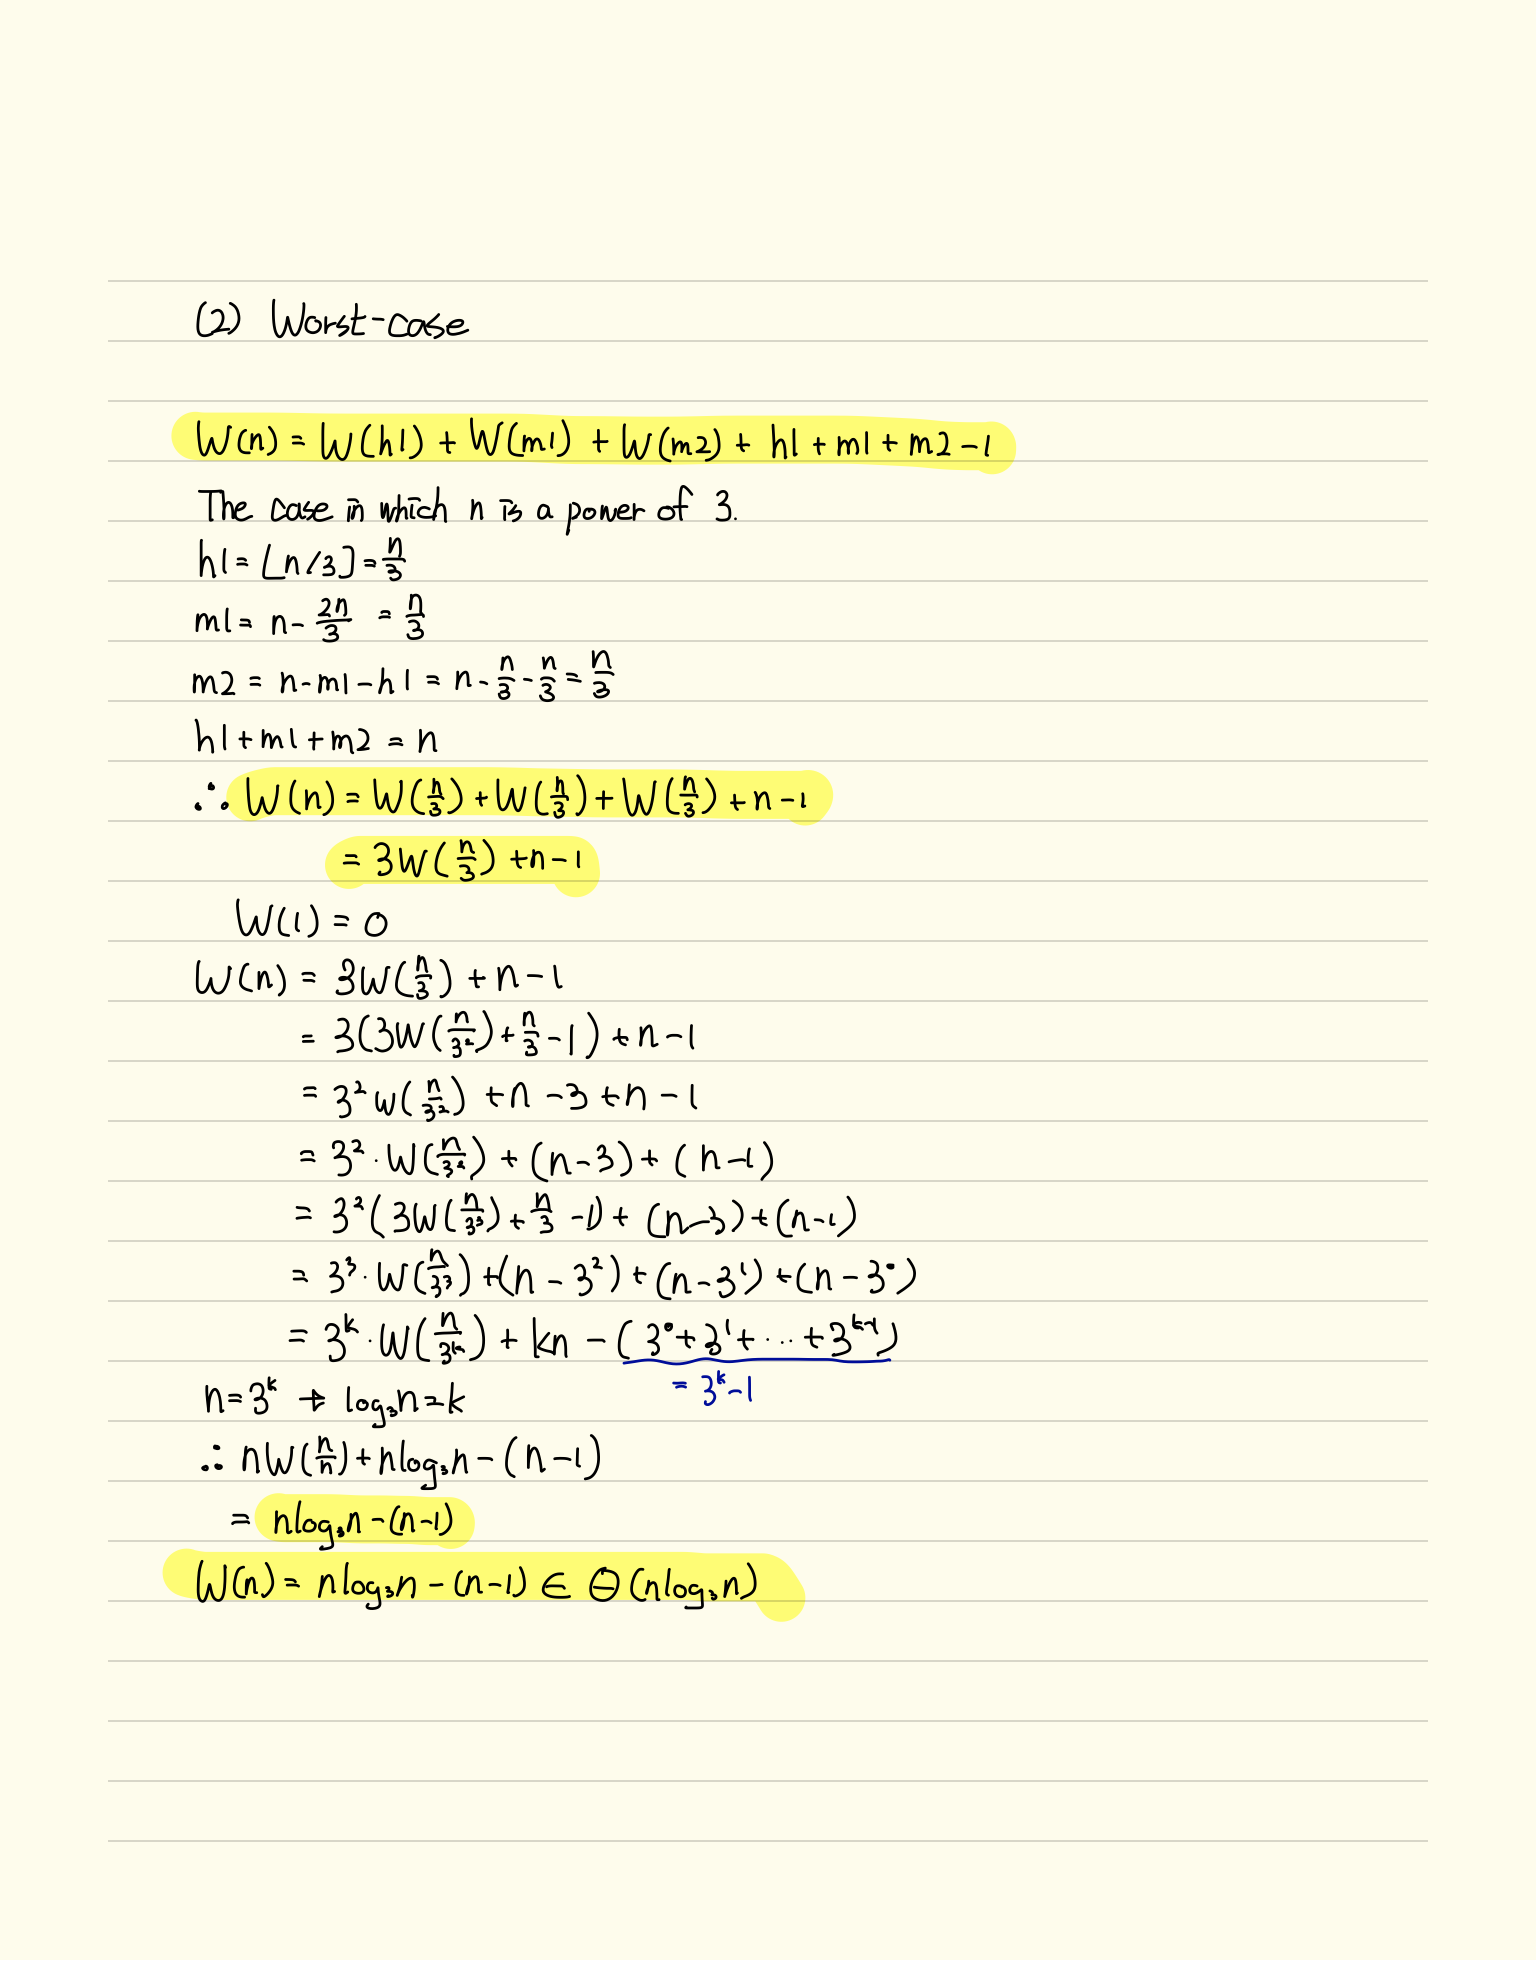 (2) Worst-case
W(n) = W(h1) + W(m1) + W(m2) + h1 + m1 + m2 - 1
The case in which n is a power of 3.
h1 = ⌊n/3⌋ = n/3
m1 = n - 2n/3 = n/3
m2 = n - m1 - h1 = n - n/3 - n/3 = n/3
h1 + m1 + m2 = n
∴ W(n) = W(n/3) + W(n/3) + W(n/3) + n - 1
= 3W(n/3) + n - 1
W(1) = 0
W(n) = 3W(n/3) + n - 1
= 3(3W(n/3²) + n/3 - 1) + n - 1
= 3² W(n/3²) + n - 3 + n - 1
= 3² · W(n/3²) + (n - 3) + (n - 1)
= 3² (3W(n/3³) + n/3 - 1) + (n - 3) + (n - 1)
= 3³ · W(n/3³) + (n - 3²) + (n - 3¹) + (n - 3⁰)
= 3ᵏ · W(n/3ᵏ) + kn - (3⁰ + 3¹ + ··· + 3ᵏ⁻¹)
= 3ᵏ - 1
n = 3ᵏ → log₃n = k
∴ nW(n/n) + nlog₃n - (n - 1)
= nlog₃n - (n - 1)
W(n) = nlog₃n - (n - 1) ∈ Θ(nlog₃n)